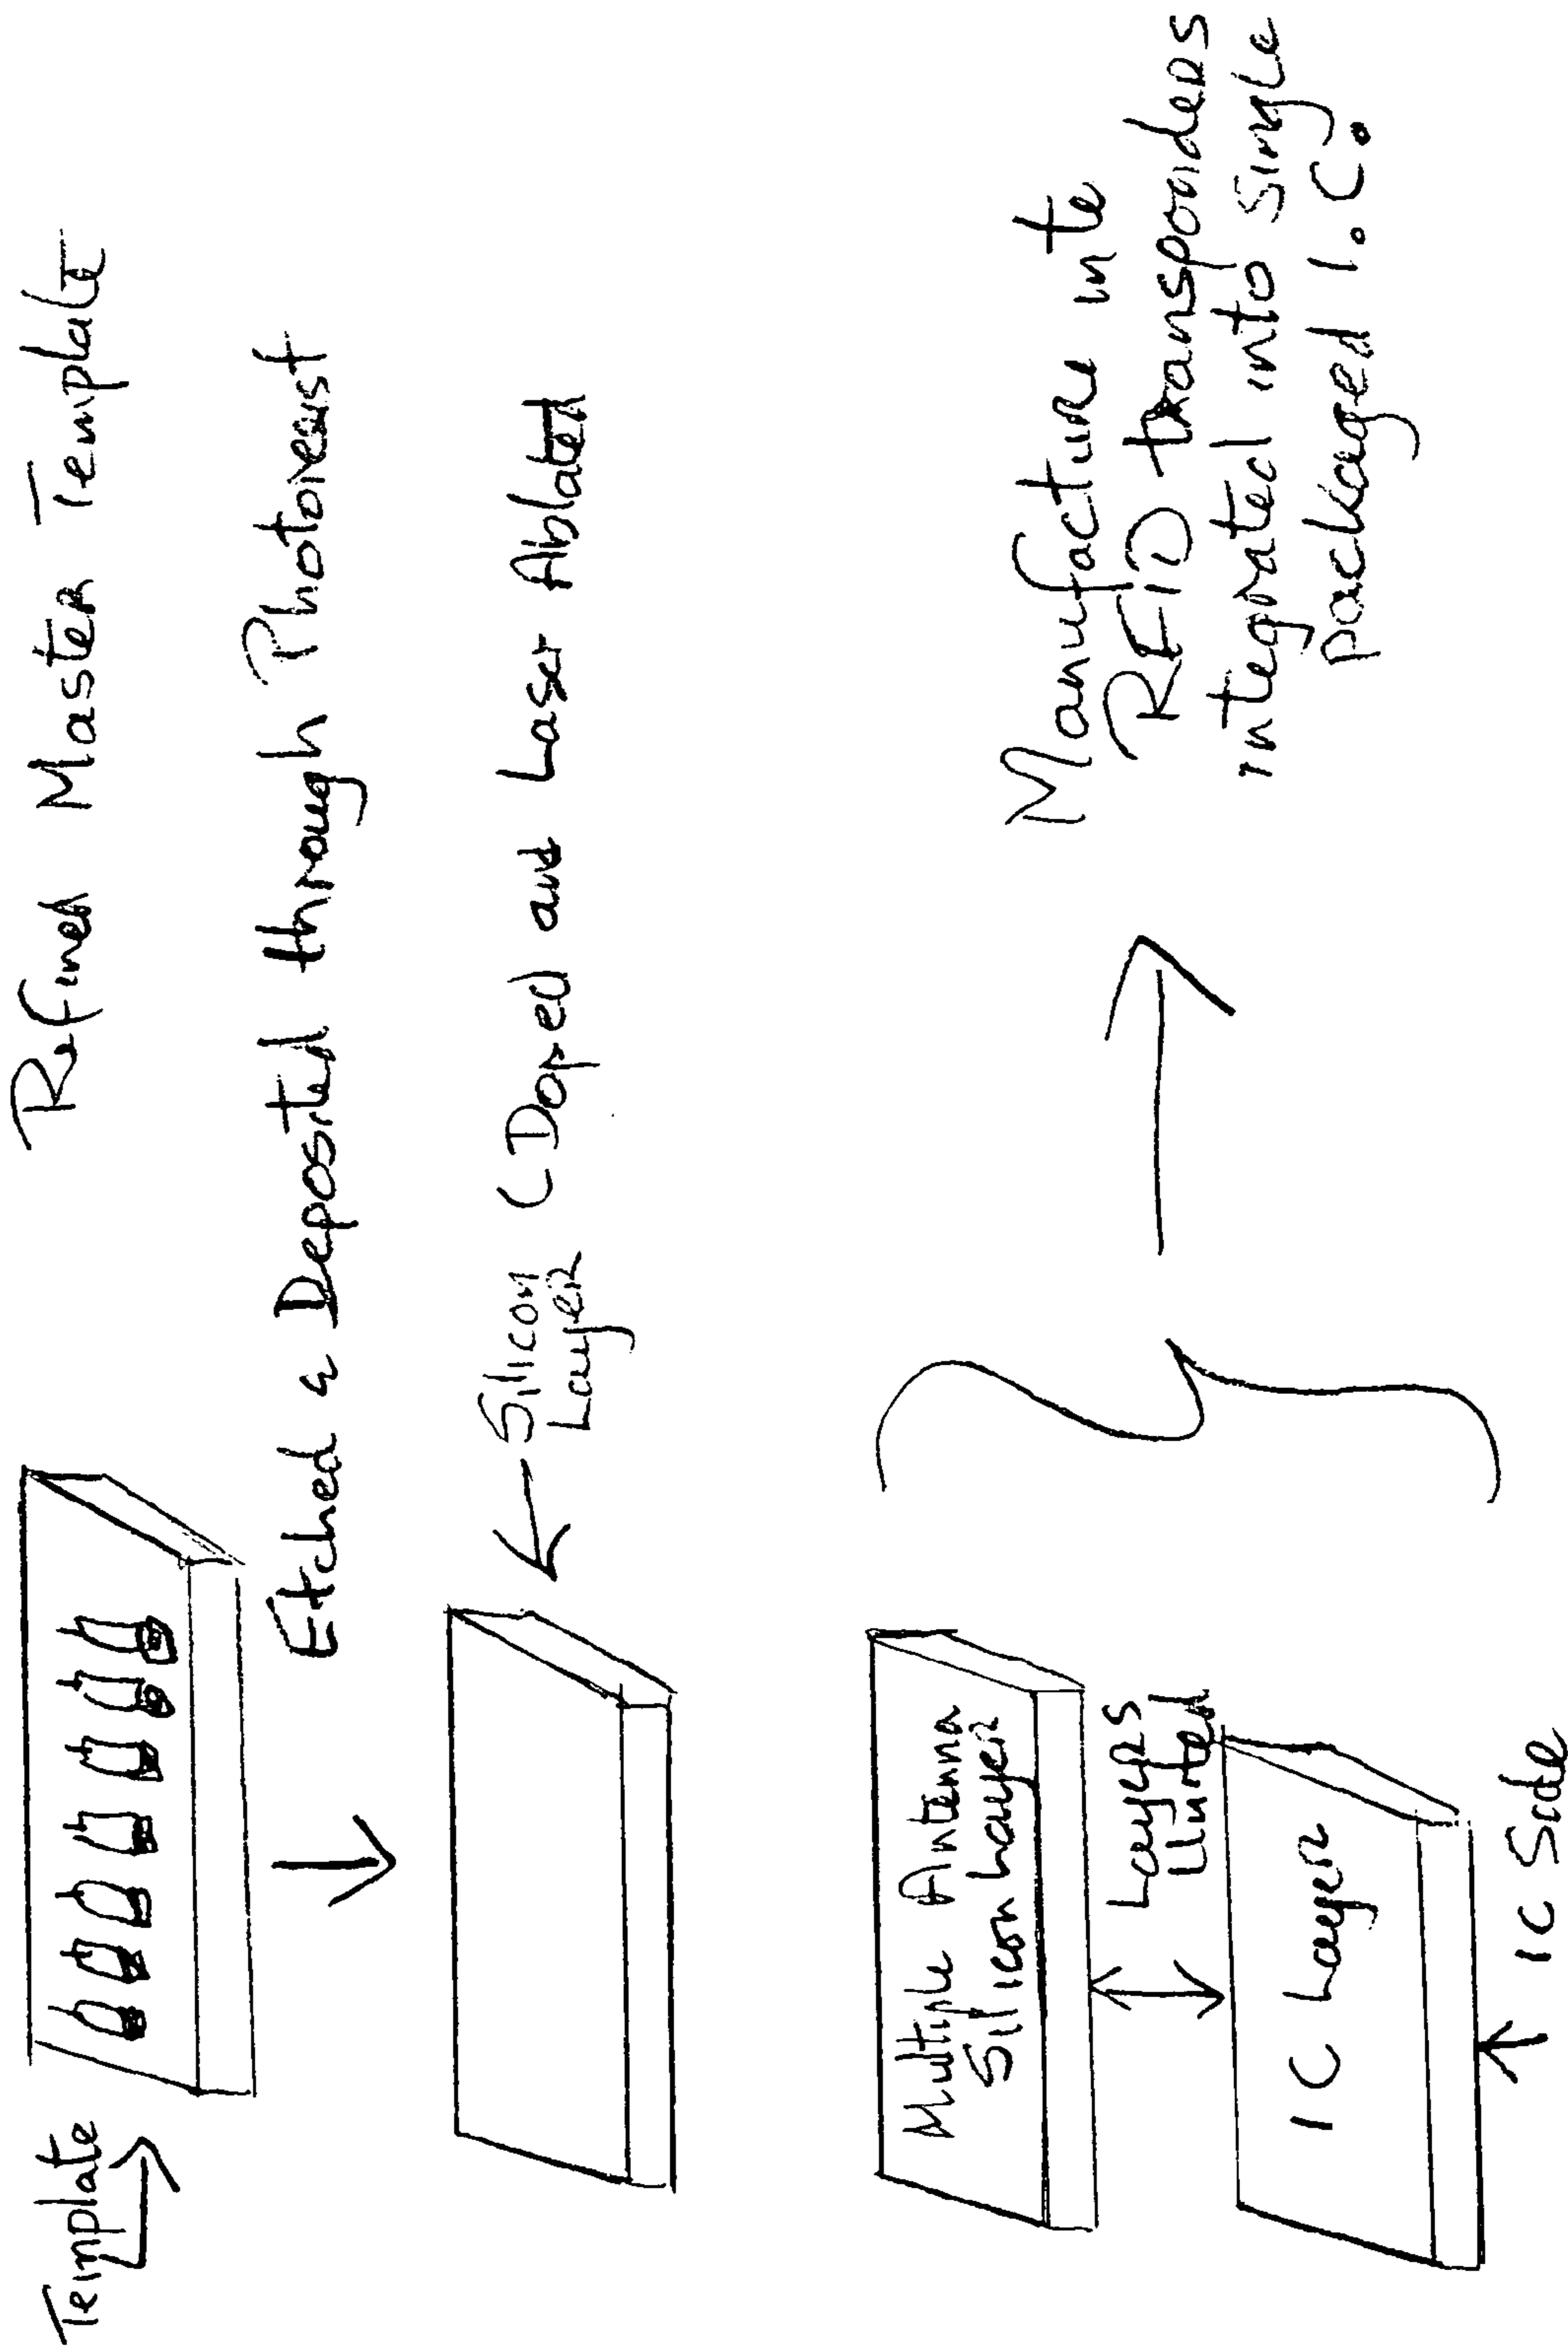 Template
Refined Master Template
Etched & Deposited through Photoresist
Silicon
Layer
(Doped and Laser Ablated
Multiple Antenna
Silicon Layer
Layers
United
IC Layer
IC Side
Manufacture into
RFID transponders
integrated into single
packaged I.C.